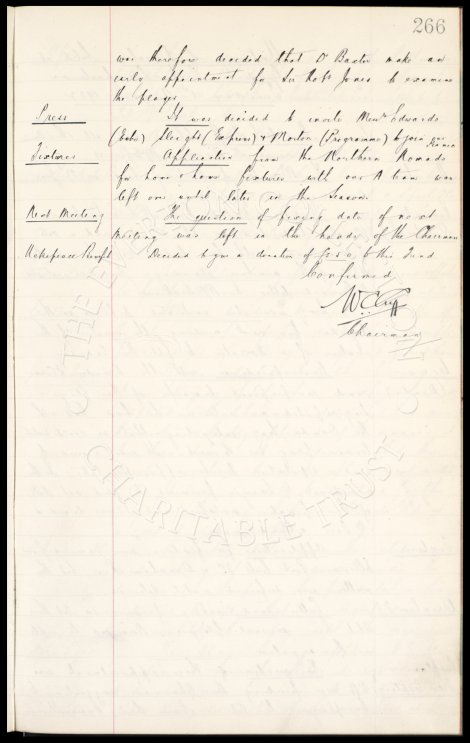 266
was therefore decided that Dr Baxter make an
early appointment for Sir Robt Jones to examine
the player.
Press It was decided to invite Messrs Edwards
(Echo) Sleight (Express) & Norton (Programme) to join our
Fixtures Application from the Northern Nomads
for home & home fixtures with our A team was
left over until later in the Season.
Next Meeting The question of fixing date of next
Meeting was left in the hands of the Chairman
Makepeace Benefit Decided to give a donation of £250 to this Fund
Confirmed
W.C. Cuff
Chairman
THE EVERTON
COLLECTION
CHARITABLE TRUST